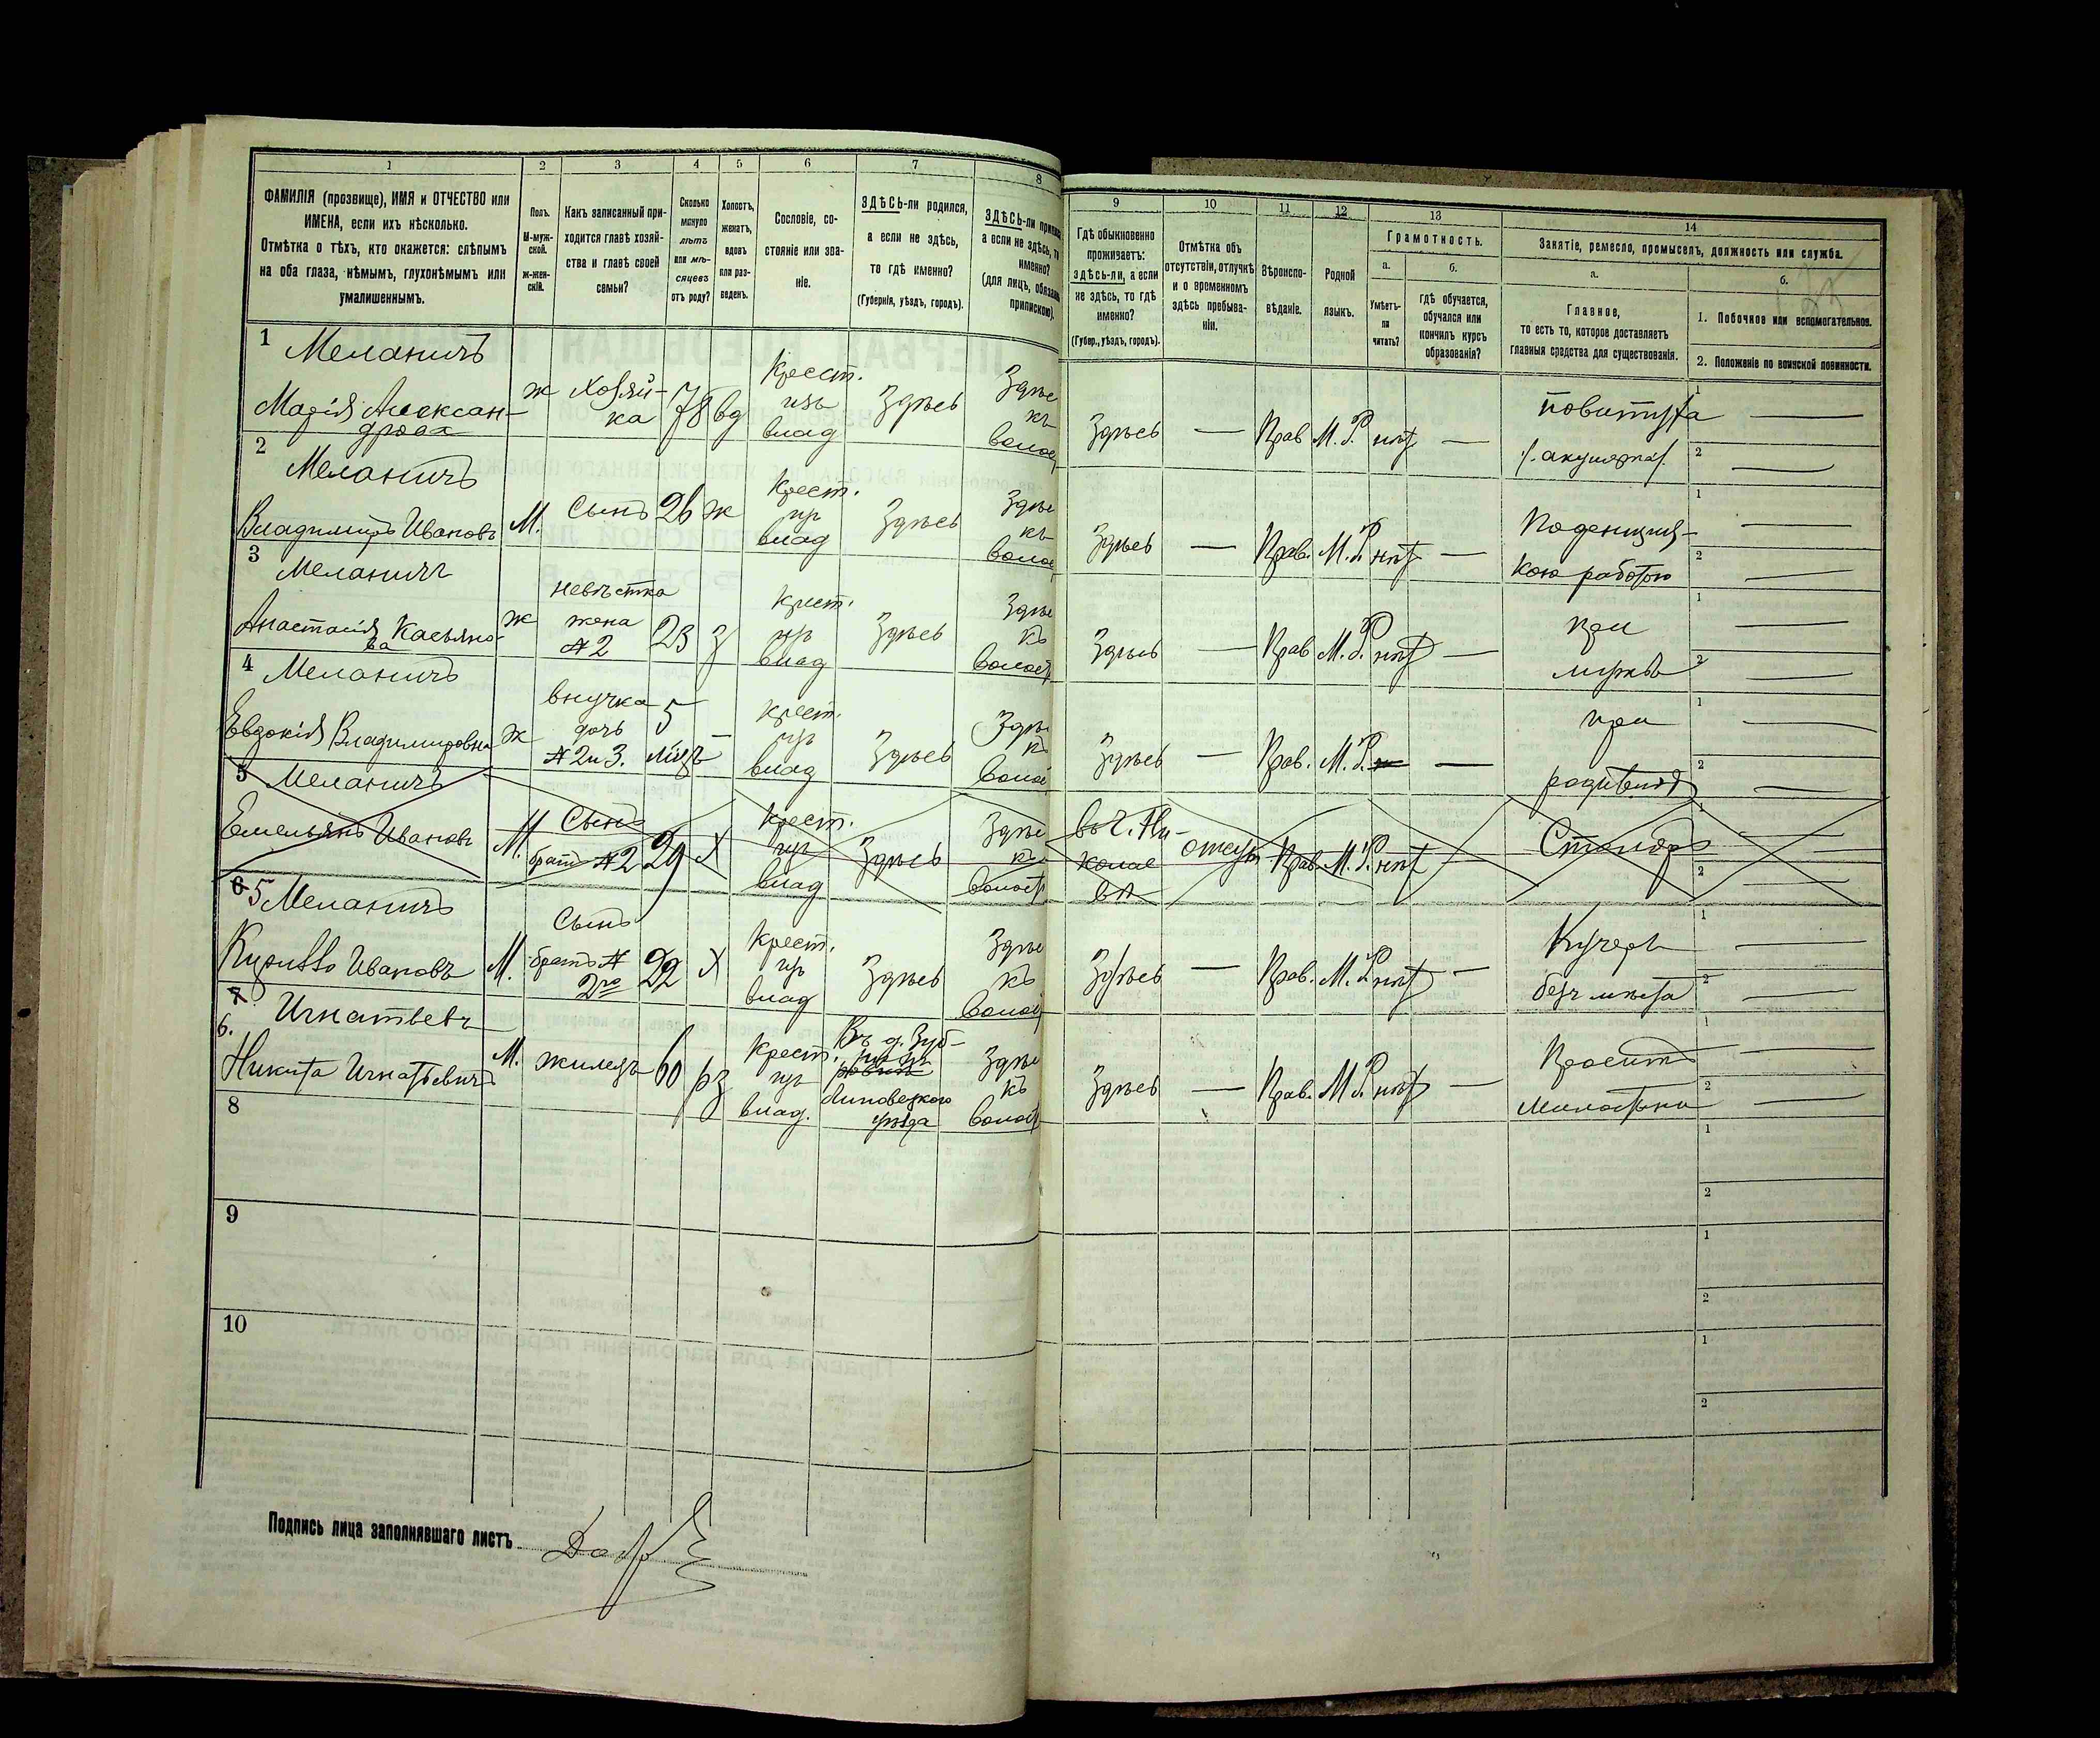 1 2 3 4 5 6 7 8 9 10 11 12 13 14
ФАМИЛІЯ (прозвище), ИМЯ и ОТЧЕСТВО или
ИМЕНА, если ихъ нѣсколько.
Отмѣтка о тѣхъ, кто окажется: слѣпымъ
на оба глаза, нѣмымъ, глухонѣмымъ или
умалишеннымъ.
Полъ.
М-муж-
ской.
ж-жен-
скій.
Какъ записанный при-
ходится главѣ хозяй-
ства и главѣ своей
семьи?
Сколько
минуло
лѣтъ
или мѣ-
сяцевъ
отъ роду?
Холостъ,
женатъ,
вдовъ
или раз-
веденъ.
Сословіе, со-
стояніе или зва-
ніе.
ЗДѢСЬ-ли родился,
а если не здѣсь,
то гдѣ именно?
(Губернія, уѣздъ, городъ).
ЗДѢСЬ-ли
а если не здѣсь, то
именно?
(для лицъ,
припискою).
Гдѣ обыкновенно
проживаетъ:
здѣсь-ли, а если
не здѣсь, то гдѣ
именно?
(Губер., уѣздъ, городъ).
Отмѣтка объ
отсутствіи, отлучкѣ
и о временномъ
здѣсь пребыва-
ніи.
Вѣроиспо-
вѣданіе.
Родной
языкъ.
Грамотность.
а.
Умѣетъ-
ли
читать?
б.
гдѣ обучается,
обучался или
кончилъ курсъ
образованія?
Занятіе, ремесло, промыселъ, должность или служба.
а.
Главное,
то есть то, которое доставляетъ
главныя средства для существованія.
б.
1. Побочное или вспомогательное.
2. Положеніе по воинской повинности.
1 Меланичъ
Марія Александрова
ж
Хозяй-
ка
78
вд
Крест.
изъ
влад
Здѣсь
Здѣ
къ
Здѣсь
—
Прав
М.Р.
нѣт
—
повитуха
(акушерка)
1 —
2 —
2
Меланичъ
Владимиръ Ивановъ
М.
Сынъ
26
ж
Крест.
из
влад
Здѣсь
Здѣ
къ
Здѣсь
—
Прав.
М.Р.
нѣт
—
Поденщиц-
кою работою
1 —
2 —
3
Меланичъ
Анастасія Касьяно-
ва
ж
невѣстка
жена
№2
23
З
Крест.
изъ
влад
Здѣсь
Здѣ
къ
Здѣсь
—
Прав
М.Р.
нѣт
—
при
мужѣ
1 —
2 —
4
Меланичъ
Евдокія Владимировна
ж
внучка
дочь
№2и3.
5
Крест.
изъ
влад
Здѣсь
къ
Здѣсь
—
Прав.
М.Р.
—
при
1 —
2 —
5 Меланичъ
Емельянъ Ивановъ
М.
Сынъ
братъ №2
29
Х
Крест.
изъ
влад
Здѣсь
Здѣ
къ
въ г. Ни-
колае
вѣ
Прав
М.Р.
нѣт
Столяръ
1 —
2 —
6 5 Меланичъ
Кирилло Ивановъ
М.
Сынъ
братъ №
2го
22
Х
Крест.
изъ
влад
Здѣсь
Здѣ
къ
Здѣсь
—
Прав.
М.Р.
нѣт
—
Кучеръ
безъ мѣста
1 —
2 —
7
6. Игнатьевъ
Никита Игнатьевичъ
М.
жилецъ
60
рз
Крест.
изъ
влад.
Въ д. Зуб-
Липовецкого
уѣзда
Здѣ
къ
Здѣсь
—
Прав.
М.Р.
нѣт
—
Проситъ
Милостыни
1 —
2 —
8
1
2
9
1
2
10
1
2
Подпись лица заполнявшаго листъ